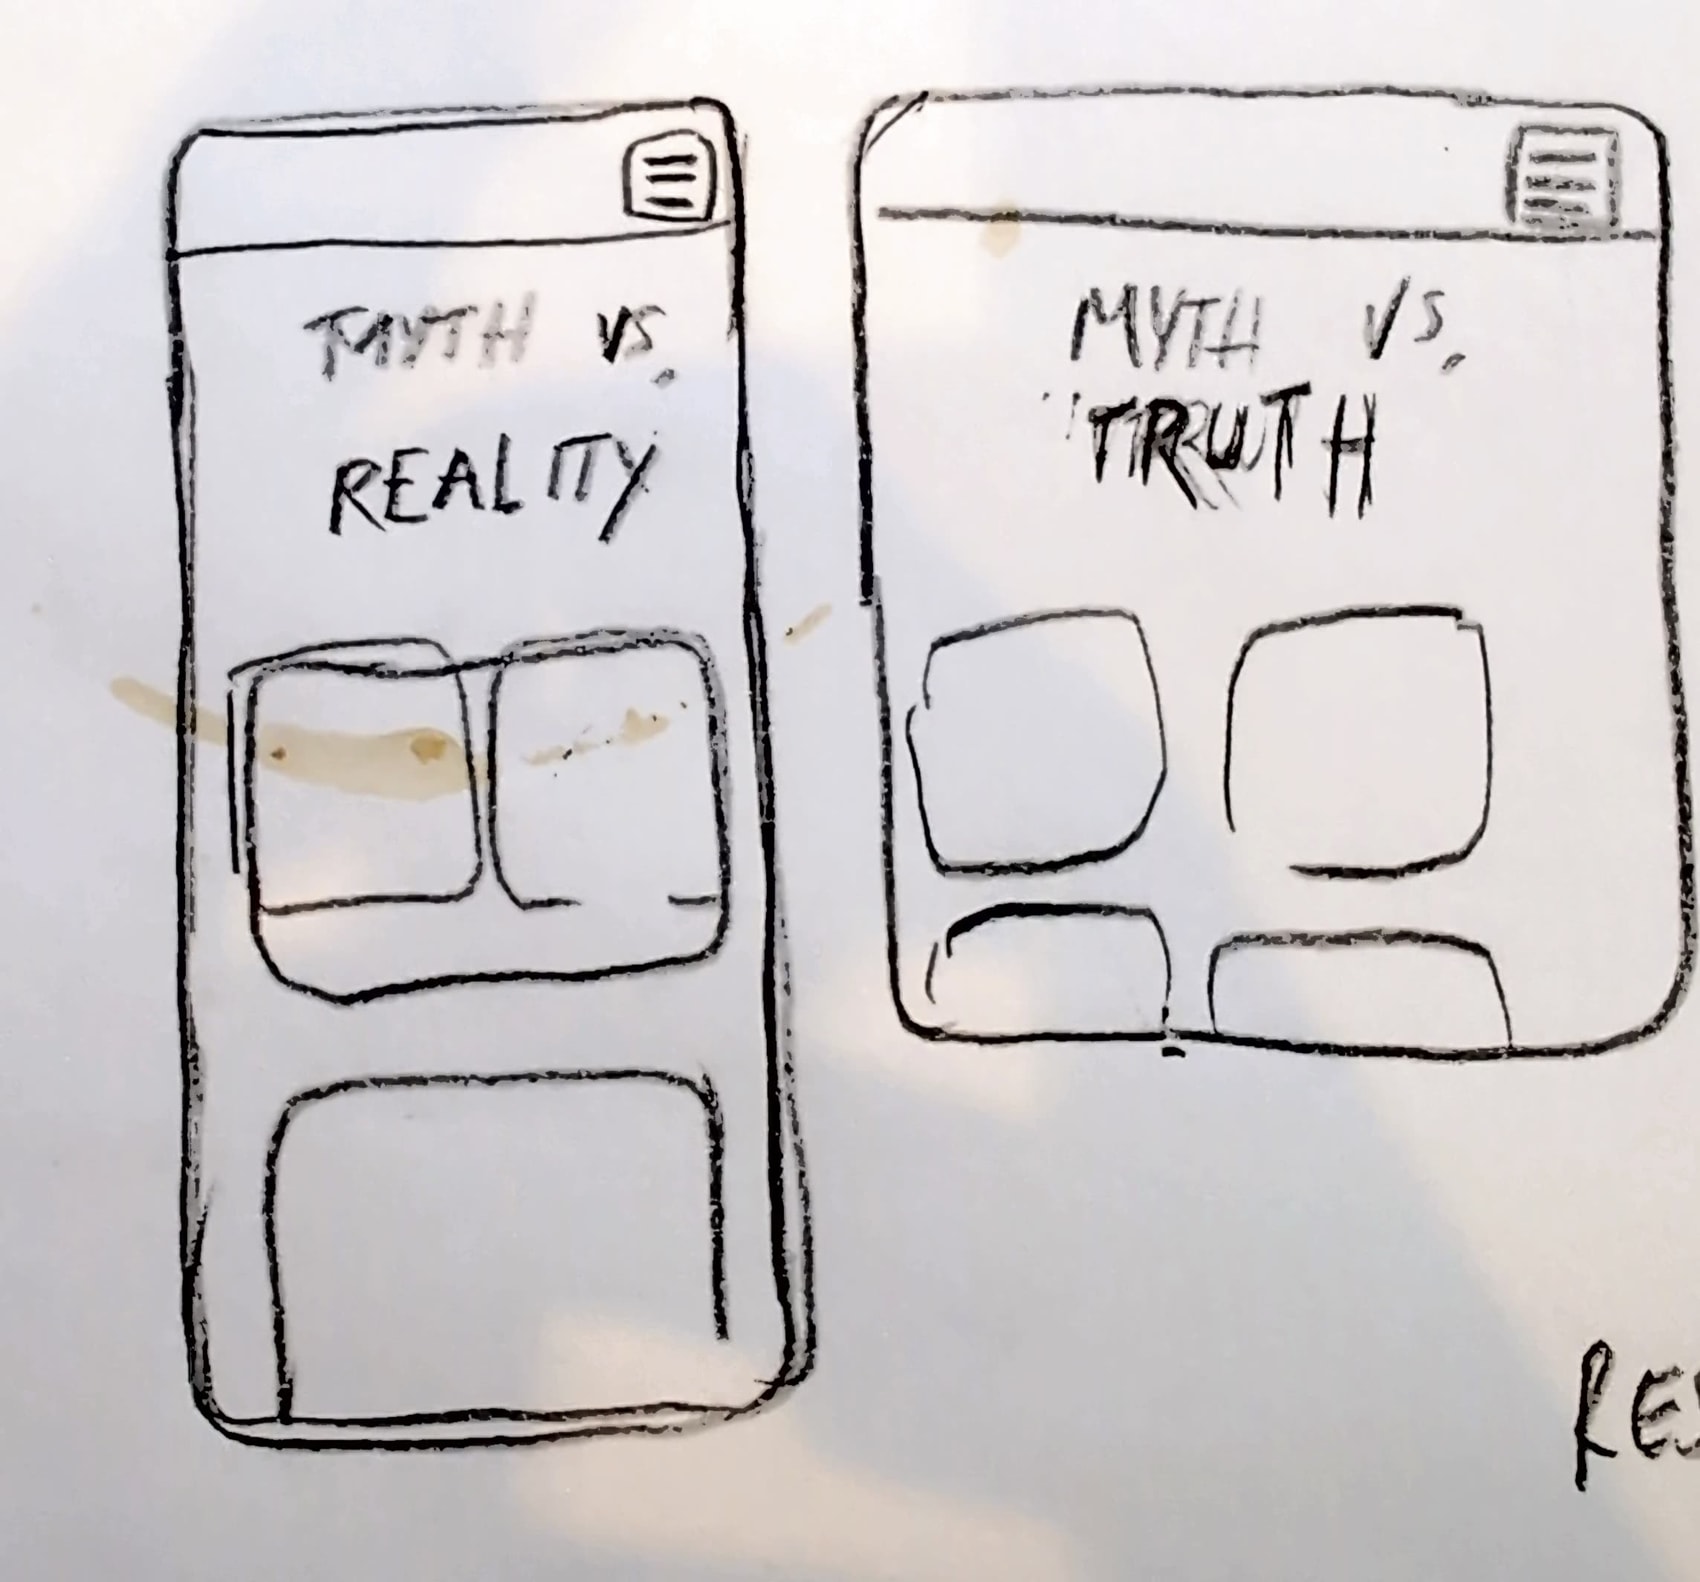 MYTH VS.
REALITY
MYTH VS.
TRUTH